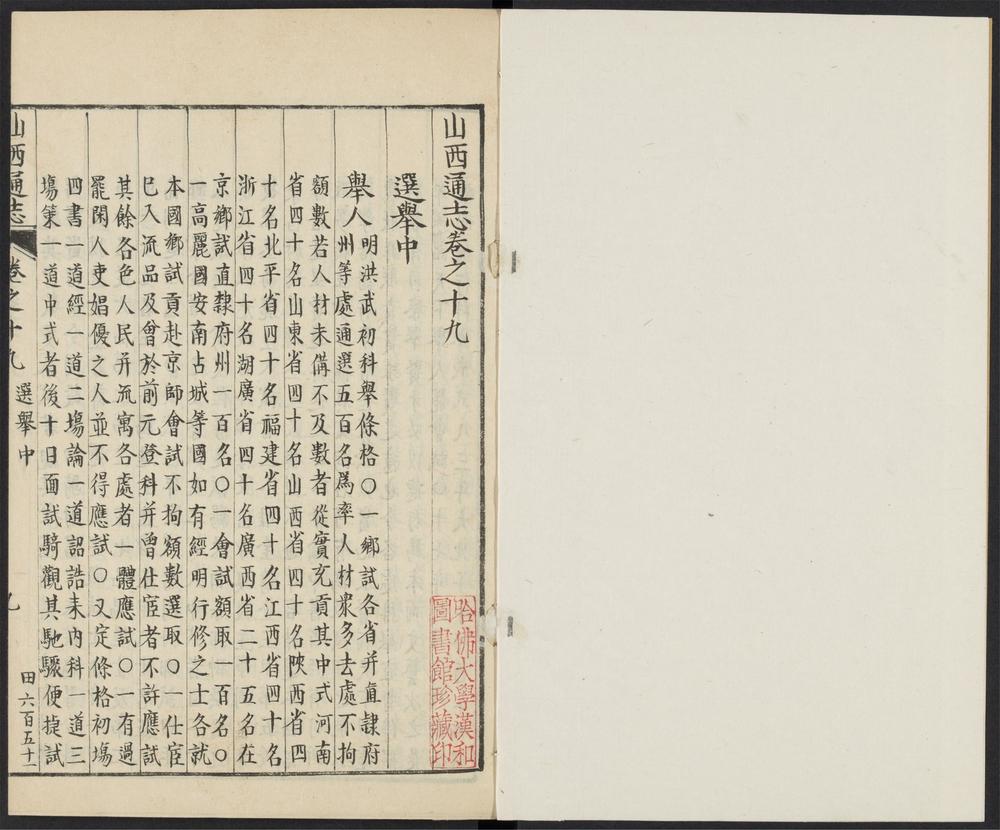 山西通志卷之十九
選舉中
舉人明洪武初科舉條格〇一鄉試各省并直隷府
州等處通選五百名爲率人材衆多去處不拘
額數若人材未備不及數者從實充貢其中式河南
省四十名山東省四十名山西省四十名陜西省四
十名北平省四十名福建省四十名江西省四十名
浙江省四十名湖廣省四十名廣西省二十五名在
京鄉試直隸府州一百名〇一會試額取一百名〇
一高麗國安南占城等國如有經明行修之士各就
本國鄉試貢赴京師會試不拘額數選取〇一仕宦
已入流品及曾於前元登科并曾仕宦者不許應試
其餘各色人民并流寓各處者一體應試〇一有過
罷閑人吏娼優之人並不得應試〇又定條格初塲
四書一道經一道二塲論一道詔誥表內科一道三
塲策一道中式者後十日面試騎觀其馳驟便捷試
山西通志
卷之十九
選舉中
田六百五十一
哈佛大學漢和
圖書館珍藏印